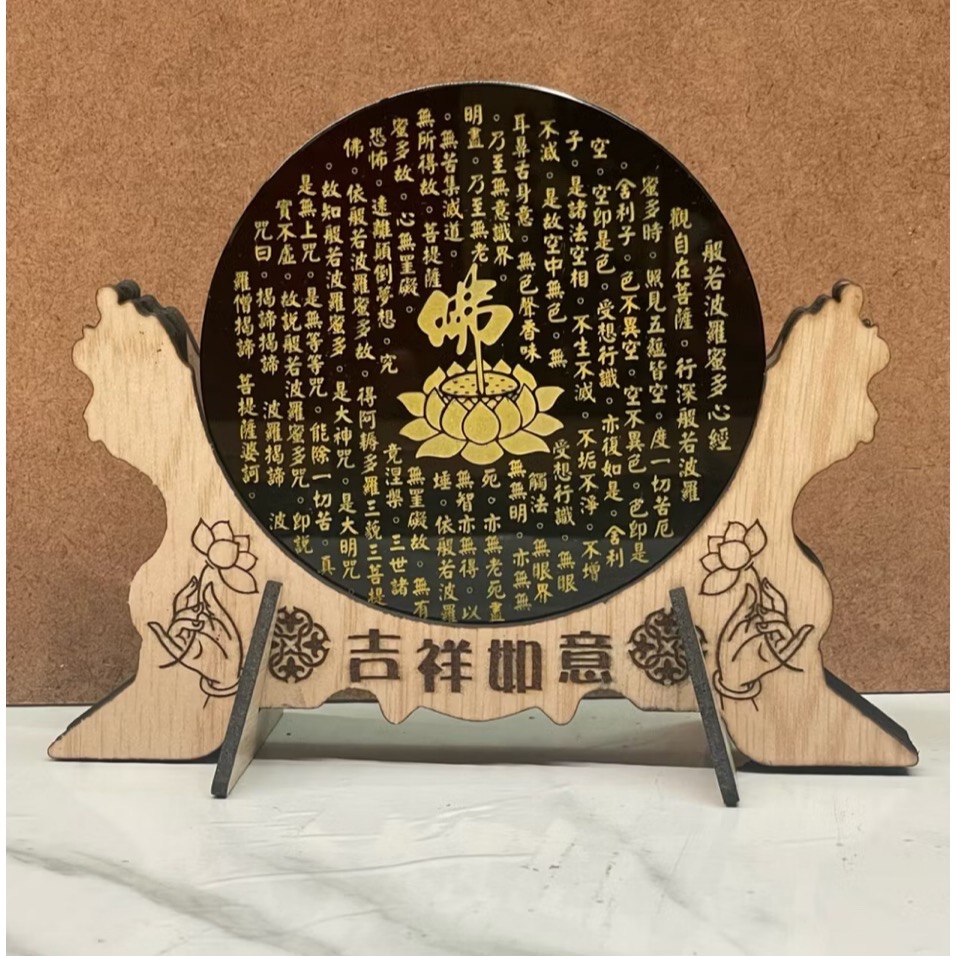 般若波羅蜜多心經
觀自在菩薩。行深般若波羅
蜜多時。照見五蘊皆空。度一切苦厄
。舍利子。色不異空。空不異色。色即是
空。空即是色。受想行識。亦復如是。舍利
子。是諸法空相。不生不滅。不垢不淨。不增
不減。是故空中無色。無 受想行識。無眼
耳鼻舌身意。無色聲香味 觸法。無眼界
。乃至無意識界。 無無明。亦無無
明盡。乃至無老 死。亦無老死盡
。無苦集滅道。 無智亦無得。以
無所得故。菩提薩 埵。依般若波羅
蜜多故。心無罣礙。 無罣礙故。無有
恐怖。遠離顛倒夢想。究 竟涅槃。三世諸
佛。依般若波羅蜜多故。得阿耨多羅三藐三菩提
。故知般若波羅蜜多。是大神咒。是大明咒
是無上咒。是無等等咒。能除一切苦。真
實不虛。故說般若波羅蜜多咒。即說
咒曰。揭諦揭諦 波羅揭諦 波
羅僧揭諦 菩提薩婆訶。
佛
吉祥如意